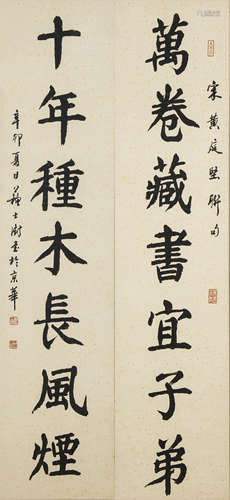 宋黃庭堅聯句
萬卷藏書宜子弟
十年種木長風煙
辛卯夏日蘇士澍書於京華